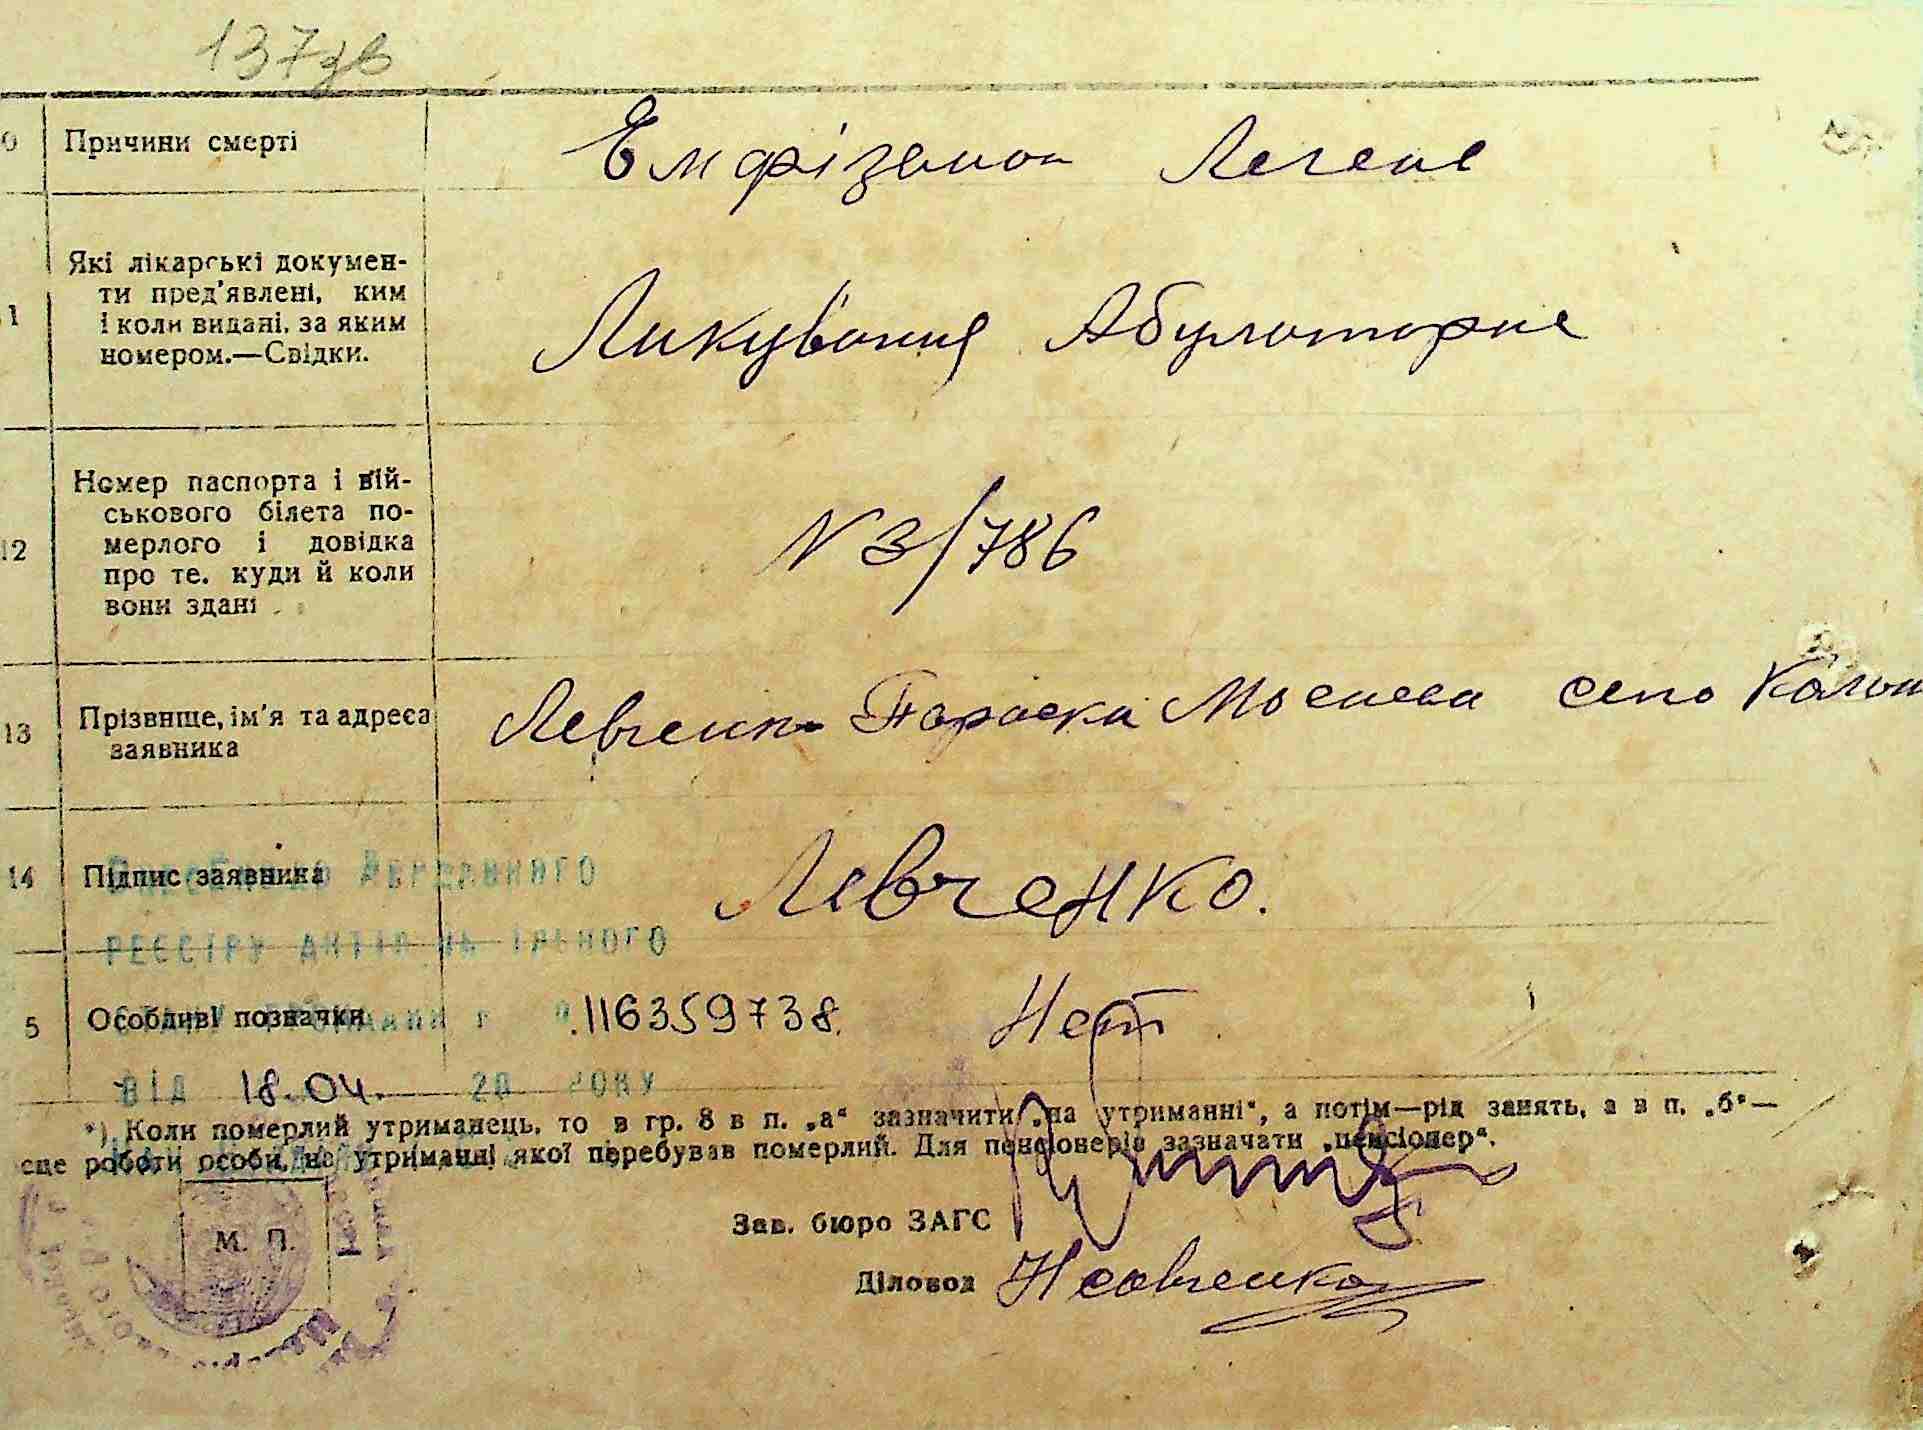 137зв
Причини смерті
Емфізема Легене
Які лікарські докумен-
ти пред'явлені, ким
і коли видані, за яким
номером.—Свідки.
Ликування Абулоторне
12
Номер паспорта і вій-
ськового білета по-
мерлого і довідка
про те, куди й коли
вони здані
N 3/786
13
Прізвище, ім'я та адреса
заявника
Левченко Параска Мосиева село
14
Підпис заявника
Левченко.
РЕЄСТРУ АКТІВ
5
Особливі позначки
116359738.
Нет
ВІД 18.04. 20 РОКУ
*) Коли померлий утриманець, то в гр. 8 в п. „а“ зазначити „на утриманні“, а потім—рід занять, а в п. „б“—
сце роботи особи, на утриманні якої перебував померлий. Для пенсіонерів зазначати „пенсіонер“.
М. П.
Зав. бюро ЗАГС
Діловод